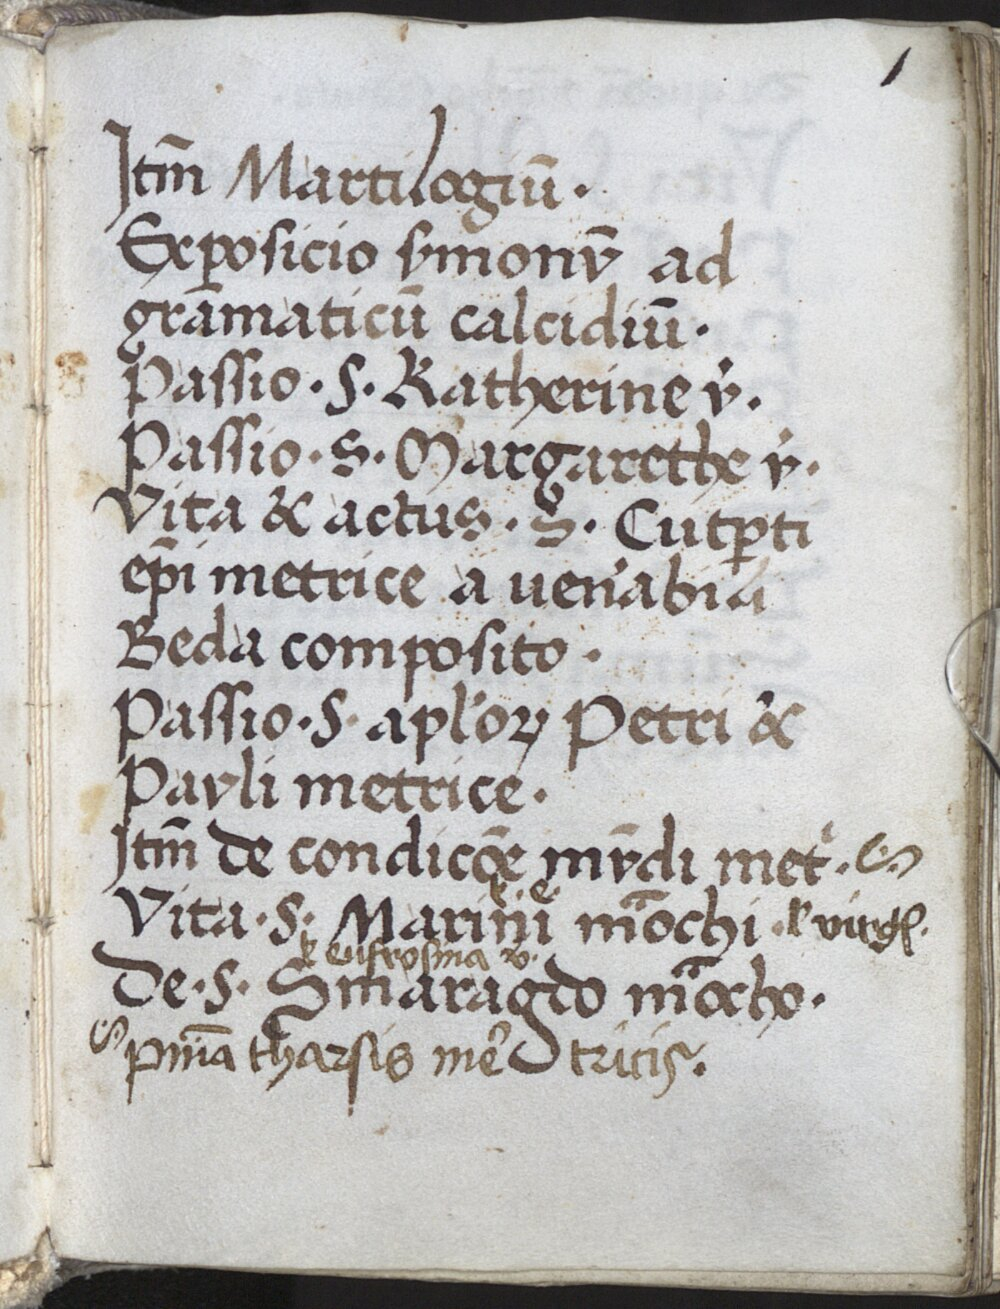 1
Itm̄ Martilogiū.
Exposicio symonv̄ ad
gramaticū calcidiū.
Passio · S · Katherine v̇.
Passio · S · Margarethe v̇.
Vita & actus · S · Cutꝑti
ep̄i metrice a uen'abi
Beda composito ·
Passio · S · apl'oꝝ Petri &
Pavli metrice ·
Itm̄ de condicōe mv̄di met'.
Vita · S · Marini mōchi · l' virgī.
l' eufrosina v.
De · S · Smaragdo mōcho.
pn̄ia tharsis me' tricis.